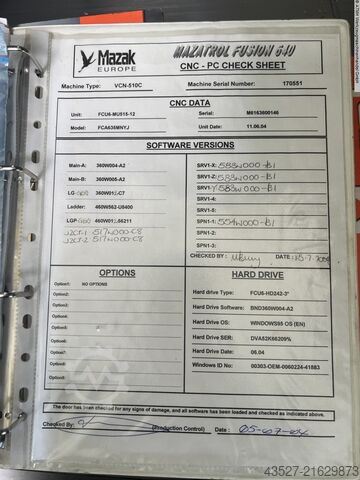 Mazak
EUROPE
MAZATROL FUSION 640
CNC - PC CHECK SHEET
Machine Type: VCN-510C Machine Serial Number: 170551
CNC DATA
Unit: FCU6-MU515-12 Serial: M6163600146
Model: FCA635MNYJ Unit Date: 11.06.04
SOFTWARE VERSIONS
Main-A: 360W004-A2 SRV1-X: 583W000-B1
Main-B: 360W005-A2 SRV1-Z: 583W000-B1
SRV1-Y 583W000-B1
Ladder: 460W563-U8400 SRV1-4:
SRV1-5:
SPN1-1: 554W000-B1
J2CT-1 517W000-C8 SPN1-2:
J2CT-2 517W000-C8 SPN1-3:
CHECKED BY: DATE:
OPTIONS
HARD DRIVE
Option1: NO OPTIONS Hard drive Type: FCU6-HD242-3*
Option2: Hard drive Software: BND360W004-A2
Option3:
Option4: Hard drive OS: WINDOWS95 OS (EN)
Option5: Hard drive SER: DVA52K66209%
Option6:
Option7: Hard drive Date: 06.04
Option8: Windows ID No: 00303-OEM-0060224-41883
Option9:
The door has been checked for any signs of damage, and all software has been loaded and checked as indicated above.
Checked By: (Production Control) Date : 05-07-04
43527-21629873